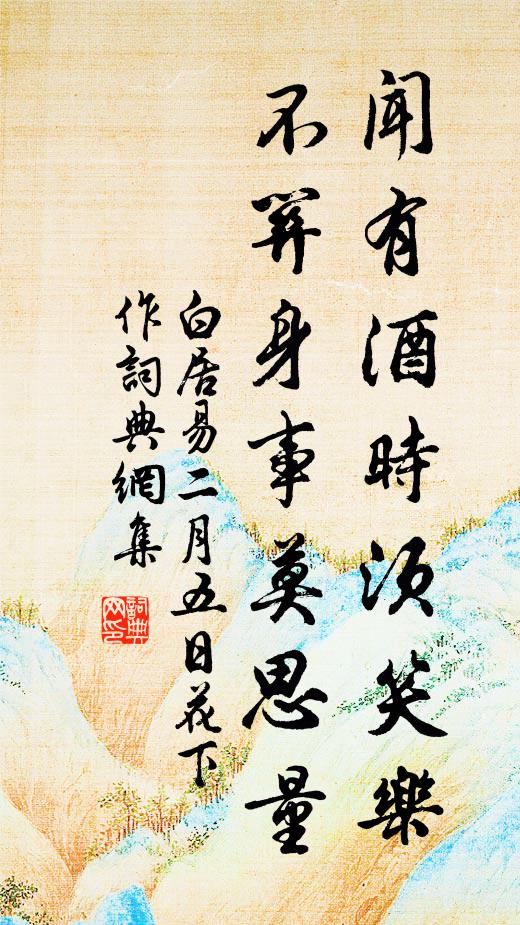 聞有酒時須笑樂
不關身事莫思量
白居易二月五日花下
作詞典網集
詞典
网印